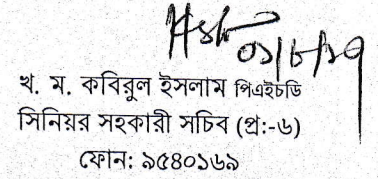 ০১/৮/১৭
খ. ম. কবিরুল ইসলাম পিএইচডি
সিনিয়র সহকারী সচিব (প্র:-৬)
ফোন: ৯৫৪০১৬৯